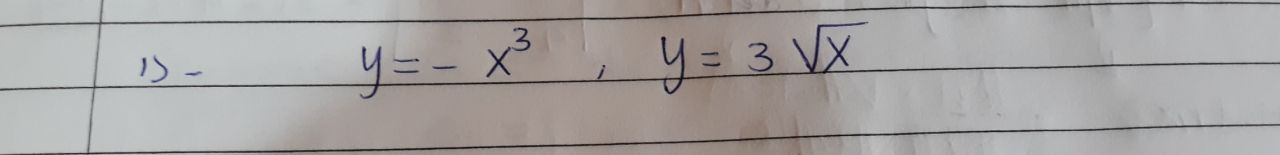 1) - y = - x³ , y = 3 √x